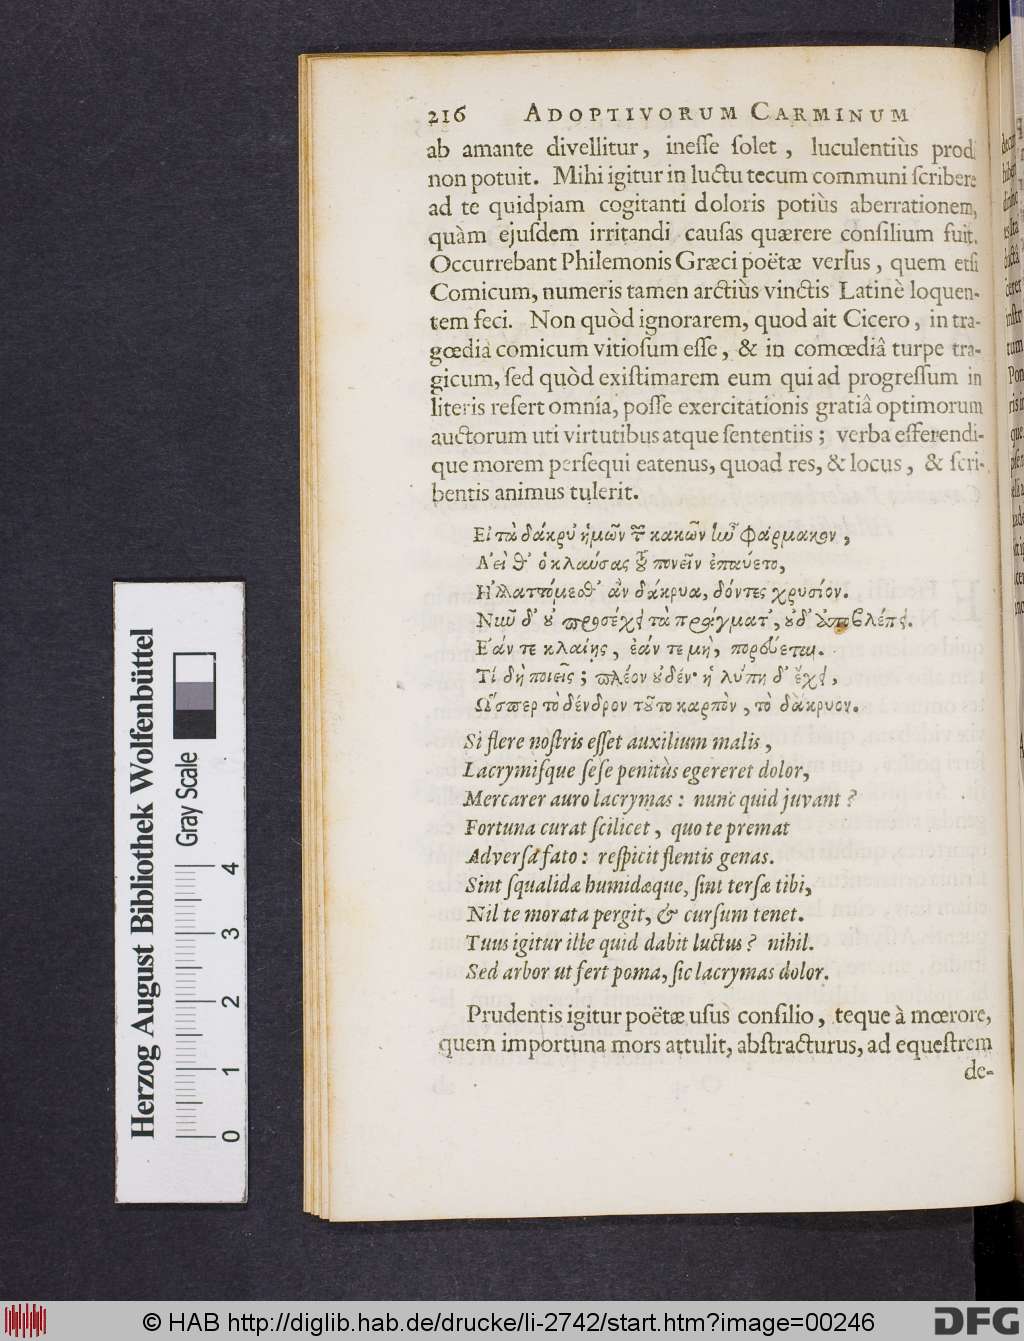 216 ADOPTIVORUM CARMINUM
ab amante divellitur, ineſſe ſolet, luculentiùs prod
non potuit. Mihi igitur in luctu tecum communi ſcribere
ad te quidpiam cogitanti doloris potiùs aberrationem,
quàm ejuſdem irritandi cauſas quærere conſilium fuit.
Occurrebant Philemonis Græci poëtæ verſus, quem etſi
Comicum, numeris tamen arctiùs vinctis Latinè loquen-
tem feci. Non quòd ignorarem, quod ait Cicero, in tra-
gœdia comicum vitioſum eſſe, & in comœdiâ turpe tra-
gicum, ſed quòd exiſtimarem eum qui ad progreſſum in
literis refert omnia, poſſe exercitationis gratiâ optimorum
auctorum uti virtutibus atque ſententiis; verba efferendi-
que morem perſequi eatenus, quoad res, & locus, & ſcri-
bentis animus tulerit.
Εἰ τὰ δάκρυ ἡμῶν τῶν κακῶν ἦν φάρμακον,
Ἀεὶ θ' ὁ κλαύσας τοῦ πονεῖν ἐπαύετο,
Ἠλλαττόμεσθ' ἂν δάκρυα, δόντες χρυσίον.
Νῦν δ' οὐ προσέχει τὰ πράγματ', οὐδ' ἀποβλέπει.
Ἐάν τε κλαίῃς, ἐάν τε μὴ, πορεύεται.
Τί δὴ ποιεῖς; πλέον οὐδέν· ἡ λύπη δ' ἔχει,
Ὥσπερ τὸ δένδρον τοῦτο καρπὸν, τὸ δάκρυον.
Si flere noſtris eſſet auxilium malis,
Lacrymiſque ſeſe penitùs egereret dolor,
Mercarer auro lacrymas: nunc quid juvant?
Fortuna curat ſcilicet, quo te premat
Adverſa fato: reſpicit flentis genas.
Sint ſqualidæ humidæque, ſint terſæ tibi,
Nil te morata pergit, & curſum tenet.
Tuus igitur ille quid dabit luctus? nihil.
Sed arbor ut fert poma, ſic lacrymas dolor.
Prudentis igitur poëtæ uſus conſilio, teque à mœrore,
quem importuna mors attulit, abſtracturus, ad equeſtrem
de-
Herzog August Bibliothek Wolfenbüttel
Gray Scale
0 1 2 3 4
© HAB http://diglib.hab.de/drucke/li-2742/start.htm?image=00246
DFG